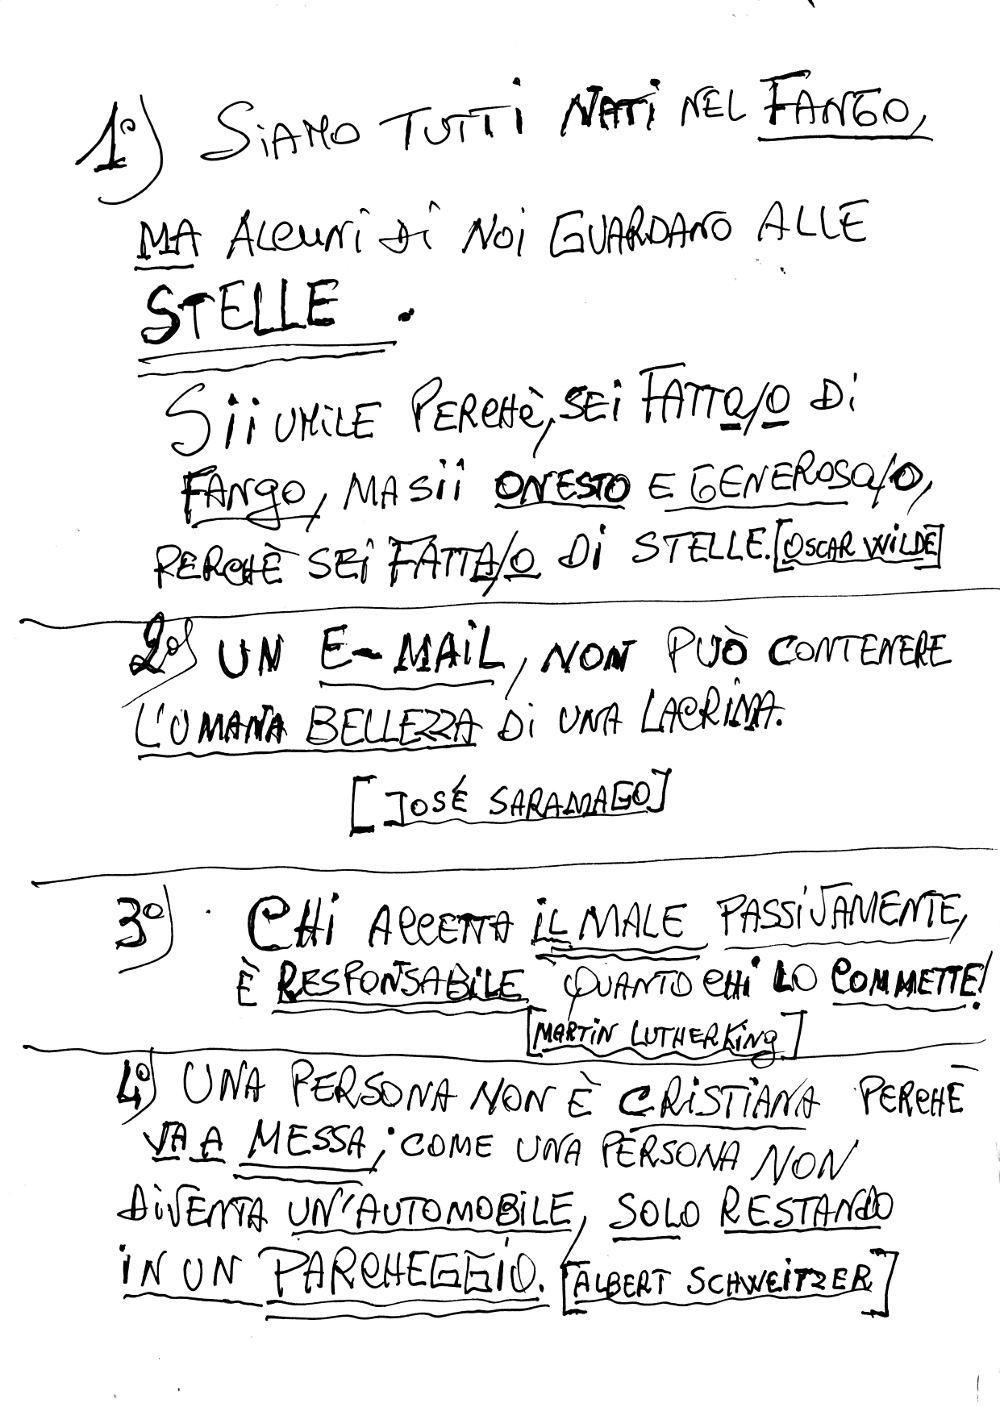 1°) SIAMO TUTTI NATI NEL FANGO,
MA ALCUNI DI NOI GUARDANO ALLE
STELLE.
SII UMILE PERCHÈ, SEI FATTO/O DI
FANGO, MA SII ONESTO E GENEROSO/O,
PERCHÈ SEI FATTA/O DI STELLE. [OSCAR WILDE]
2°) UN E-MAIL, NON PUÒ CONTENERE
L'UMANA BELLEZZA DI UNA LACRIMA.
[JOSÉ SARAMAGO]
3°) CHI ACCETTA IL MALE PASSIVAMENTE,
È RESPONSABILE QUANTO CHI LO COMMETTE!
[MARTIN LUTHER KING]
4°) UNA PERSONA NON È CRISTIANA PERCHÈ
VA A MESSA; COME UNA PERSONA NON
DIVENTA UN'AUTOMOBILE, SOLO RESTANDO
IN UN PARCHEGGIO. [ALBERT SCHWEITZER]